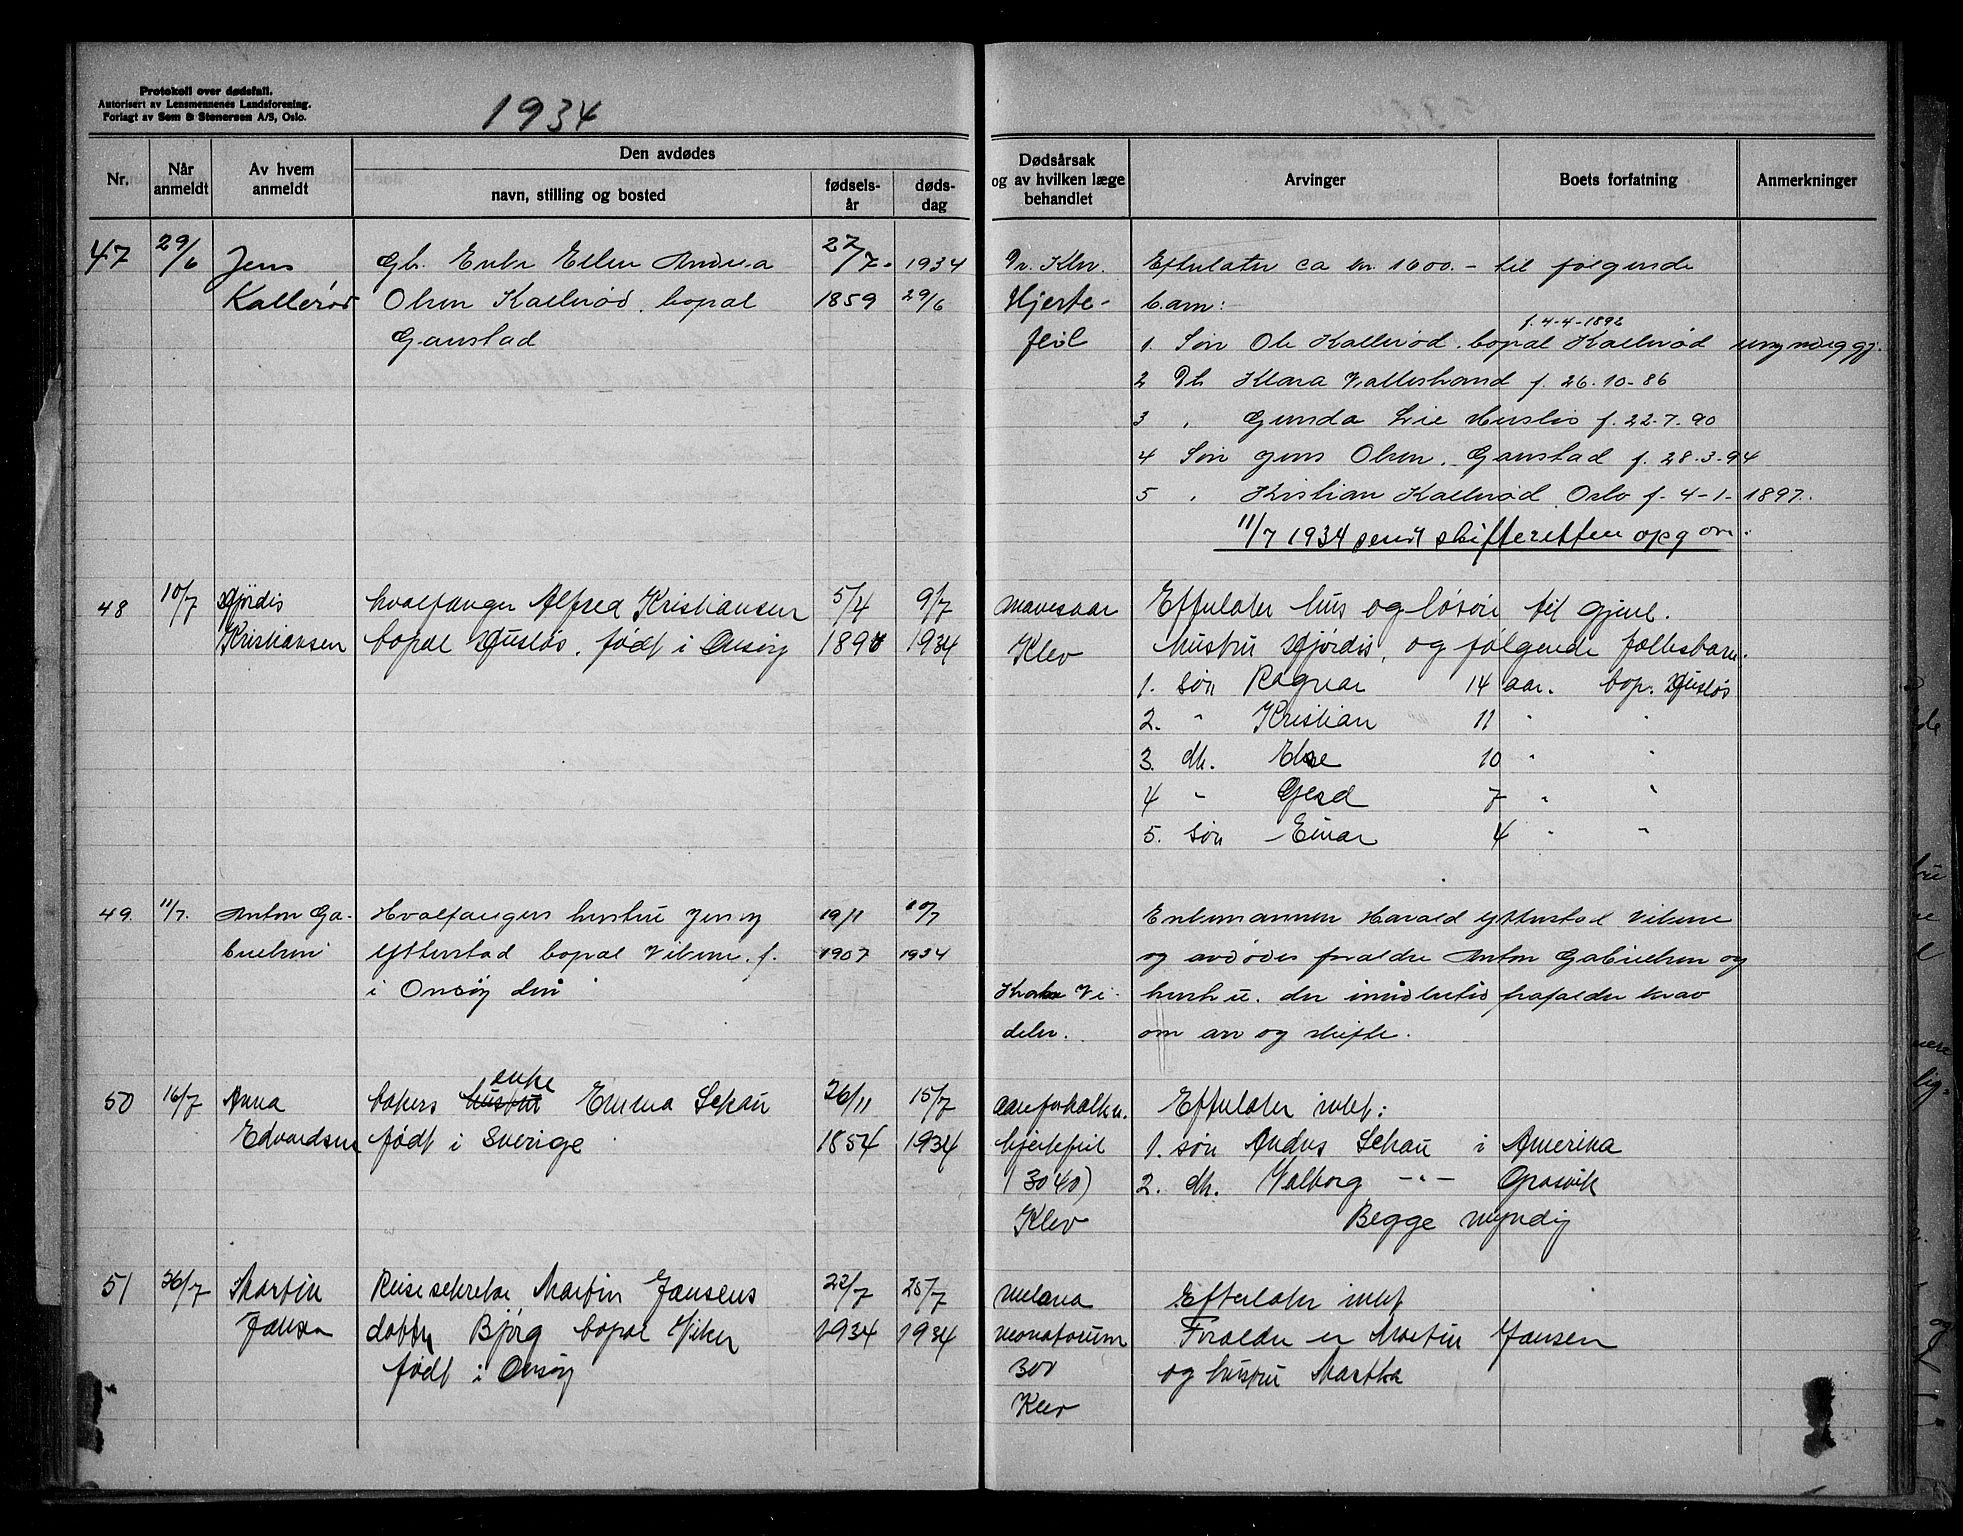 Protokoll over dødsfall.
Autorisert av Lensmennenes Landsforening.
Forlagt av Sem & Stenersen A/S, Oslo.
1934
Nr.
Når anmeldt
Av hvem anmeldt
Den avdødes
navn, stilling og bosted
fødsels-år
døds-dag
Dødsårsak og av hvilken læge behandlet
Arvinger
Boets forfatning
Anmerkninger
47 29/6 Jens Gb. Enke Ellen Andrea 27/7. 1934 Dr. Klev. Efterlater ca kr. 1600.- til følgende
Kallerød Olsen Kallerød, bopal 1859 29/6 Hjerte- barn:
f. 4-4-1892
Ganstad feil 1. Søn Ole Kallerød, bopal Kallerød umyndiggj.
2 Dt Klara Vallestrand f. 26.10-86
3 " Gunda Lie Husløs f. 22.7.90
4 Søn Jens Olsen, Ganstad f. 28.3.94
5 " Kristian Kallerød Oslo f. 4-1-1897.
11/7 1934 sendt skifteretten opg
48 10/7 Hjørdis hvalfanger Alfred Kristiansen 5/4 9/7 mavesaar Efterlater hus og løsøre til gjenl.
Kristiansen bopal Husløs, født i Onsøy 1890 1934 Klev hustru Hjørdis, og følgende fellesbarn.
1. søn Ragnar 14 aar. bop. Husløs
2. " Kristian 11 " "
3. dt. Else 10 " "
4 " Gerd 7 " "
5. søn Einar 4 " "
49. 11/7. Anton Ga- Hvalfangers hustru Jenny 19/1 10/7 Enkemannen Harald Ytterstad Vikene
brielsen Ytterstad bopal Vikene. f. 1907 1934 og avdødes foreldre Anton Gabrielsen og
i Onsøy hustru. der imidlertid frafalder krav
om arv og skifte.
50 16/7 Anna bakers hustru enke Emma Schau 26/11 15/7 aareforkalkn. Efterlater intet:
Edvardsen født i Sverige 1854 1934 hjertefeil 1. søn Anders Schau i Amerika
(3040) 2. dt. Valborg -"- Gresvik
Klev Begge myndig
51 26/7 Martin Reisesekretær Martin Jansens 22/7 25/7 melæna Efterlater intet
Jansen datter Bjørg bopal Viker 1934 1934 neonatorum Foreldre er Martin Jansen
født i Onsøy 300 og hustru Martha
Klev